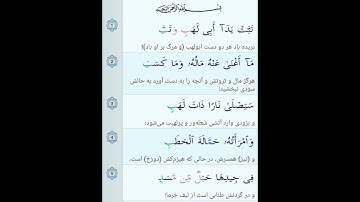 تَبَّتْ يَدَآ أَبِى لَهَبٍ وَتَبَّ
بریده باد هر دو دست ابولهب (و مرگ بر او باد)!
مَآ أَغْنَىٰ عَنْهُ مَالُهُۥ وَمَا كَسَبَ
هرگز مال و ثروتش و آنچه را به دست آورد به حالش
سودی نبخشید!
سَيَصْلَىٰ نَارًا ذَاتَ لَهَبٍ
و بزودی وارد آتشی شعله‌ور و پرلهیب می‌شود؛
وَٱمْرَأَتُهُۥ حَمَّالَةَ ٱلْحَطَبِ
و (نیز) همسرش، در حالی که هیزم‌کش (دوزخ) است،
فِى جِيدِهَا حَبْلٌ مِّن مَّسَدٍۭ
و در گردنش طنابی است از لیف خرما!